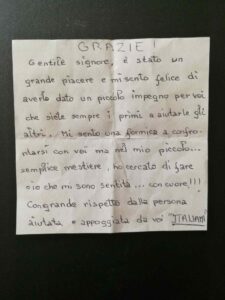 GRAZIE!
Gentile signore, è stato un
grande piacere e mi sento felice di
averlo dato un piccolo impegno per voi
che siete sempre i primi a aiutarle gli
altri. Mi sento una formica a confro-
ntarsi con voi ma nel mio piccolo...
semplice mestiere, ho cercato di fare
ciò che mi sono sentita... con cuore!!!
Con grande rispetto dalla persona
aiutata e appoggiata da voi "ITALIANI